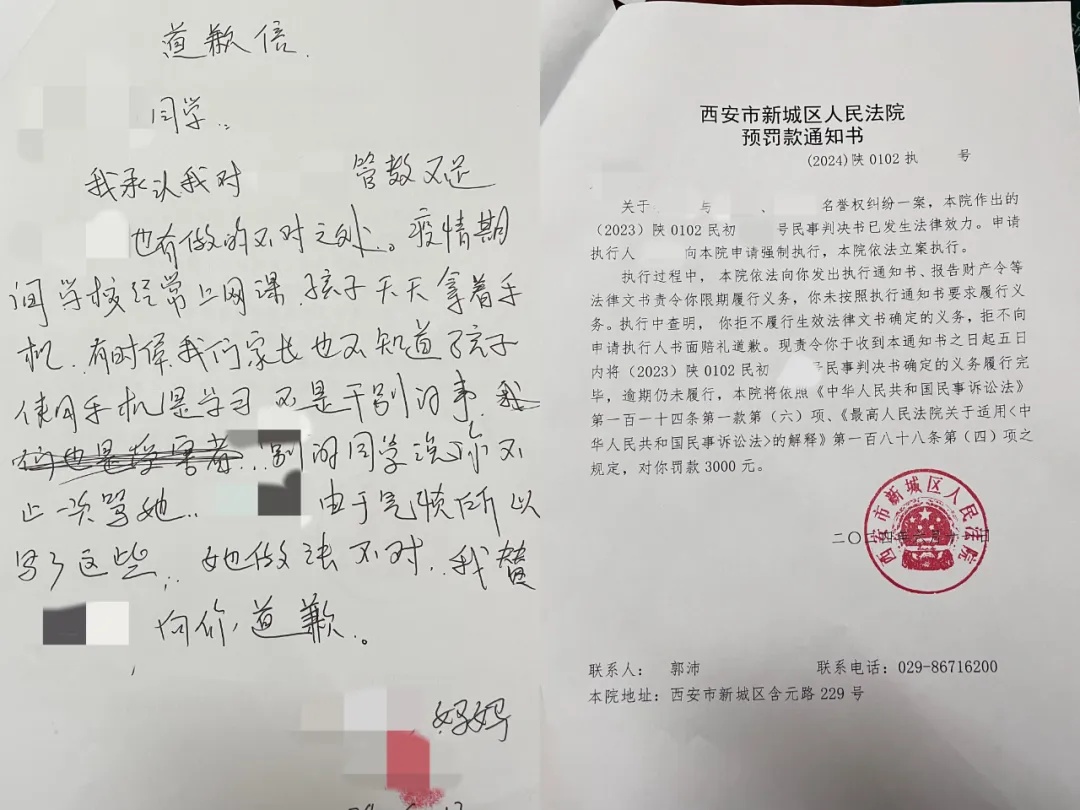 道歉信.
同学:
我承认我对 管教不足
也有做的不对之处。疫情期
间学校经常上网课.孩子天天拿着手
机.有时候我们家长也不知道孩子
使用手机是学习还是干别的事.我
别的同学说你不
止一次骂她.
由于气愤所以
写了这些.她做法不对.我替
向你道歉。
妈妈
西安市新城区人民法院
预罚款通知书
(2024)陕 0102 执 号
关于 与 、 名誉权纠纷一案，本院作出的
（2023）陕 0102 民初 号民事判决书已发生法律效力。申请
执行人 向本院申请强制执行，本院依法立案执行。
执行过程中， 本院依法向你发出执行通知书、报告财产令等
法律文书责令你限期履行义务，你未按照执行通知书要求履行义
务。执行中查明， 你拒不履行生效法律文书确定的义务，拒不向
申请执行人书面赔礼道歉。现责令你于收到本通知书之日起五日
内将（2023）陕 0102 民初 号民事判决书确定的义务履行完
毕，逾期仍未履行，本院将依照《中华人民共和国民事诉讼法》
第一百一十四条第一款第（六）项、《最高人民法院关于适用<中
华人民共和国民事诉讼法>的解释》第一百八十八条第（四）项之
规定，对你罚款 3000 元。
西安市新城区人民法院
二〇二四年六月 日
联系人： 郭沛 联系电话：029-86716200
本院地址：西安市新城区含元路 229 号